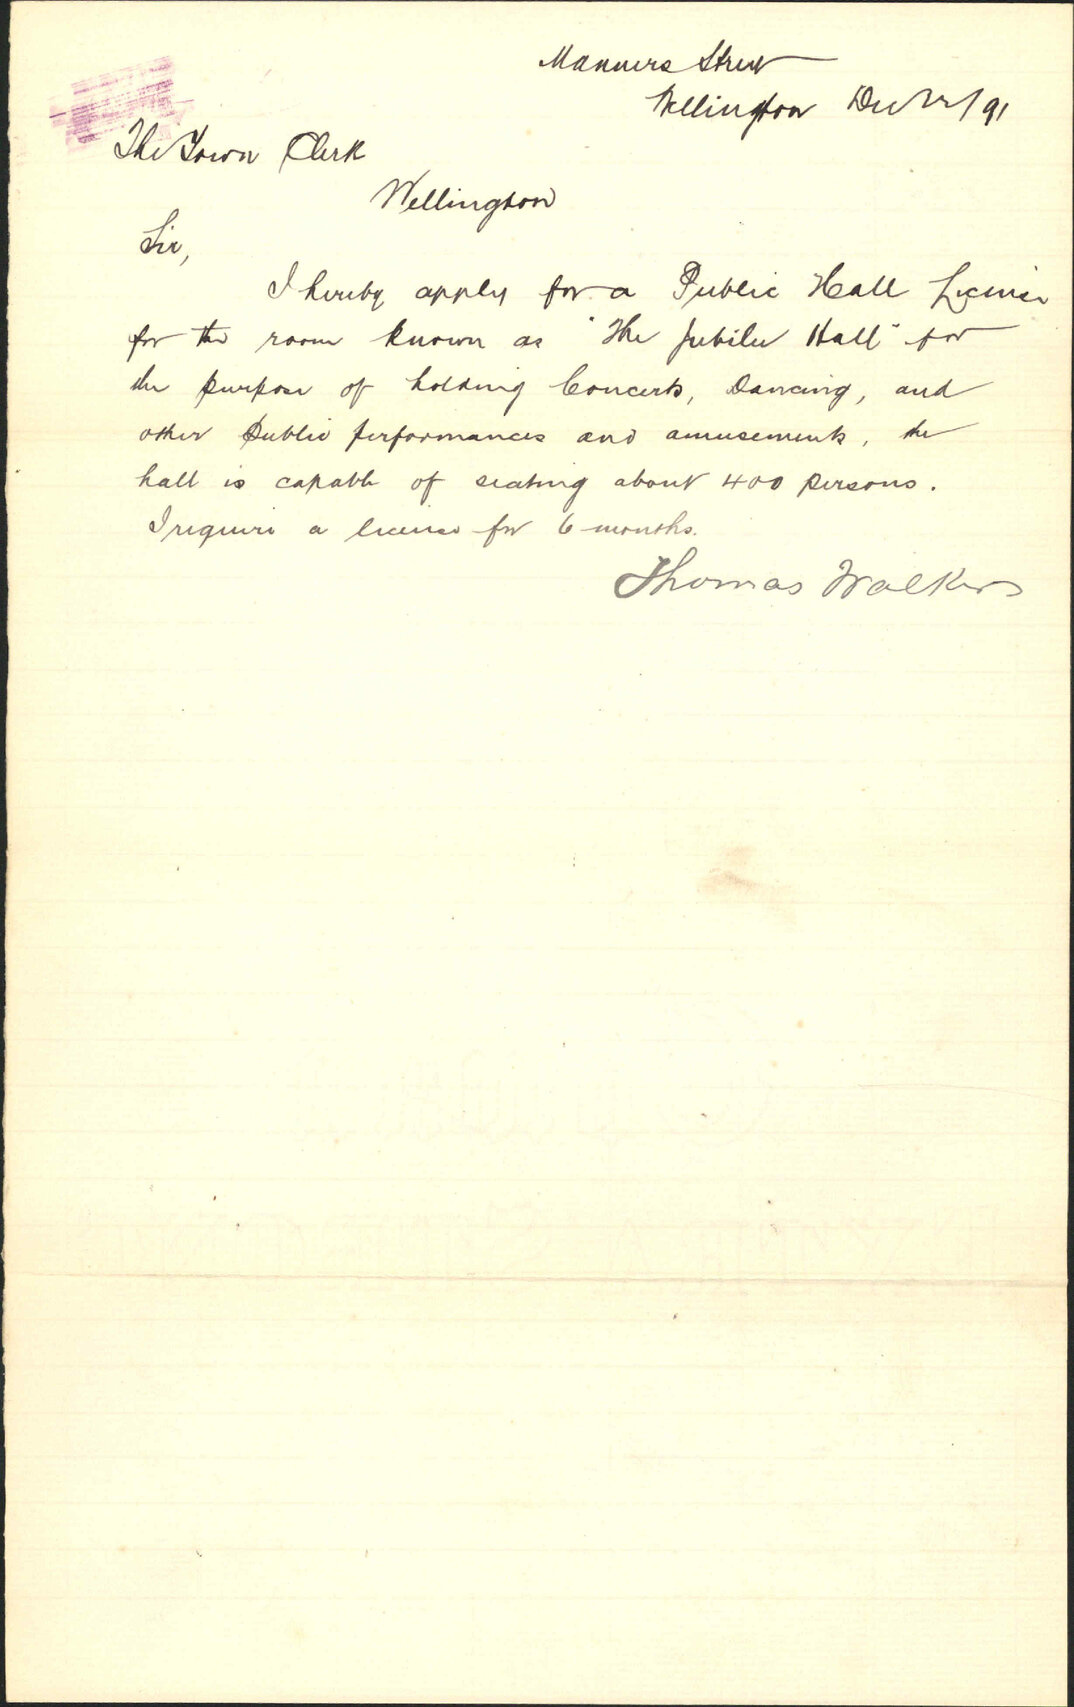 Manners Street
Wellington Dec 22/91
The Town Clerk
Wellington
Sir,
I hereby apply for a Public Hall License
for the room known as "The Jubilee Hall" for
the purpose of holding Concerts, Dancing, and
other public performances and amusements, the
hall is capable of seating about 400 persons.
I require a license for 6 months.
Thomas Walker